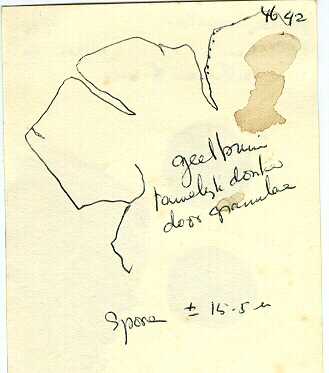 4642
geelbruin
tamelijk donker
door granulae
Spore ± 15.5 u